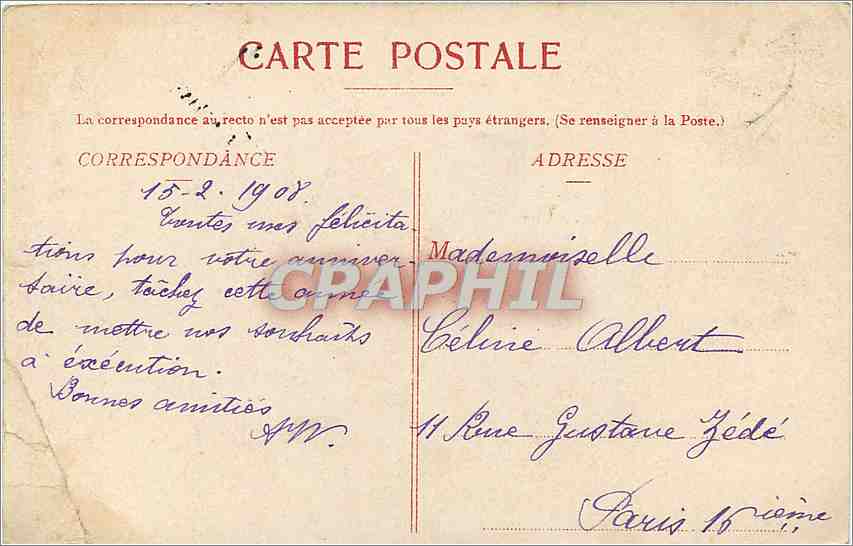 CARTE POSTALE
La correspondance au recto n'est pas acceptée par tous les pays étrangers. (Se renseigner à la Poste.)
CORRESPONDANCE
15-2. 1908.
Toutes mes félicita-
tions pour votre anniver-
saire, tâchez cette année
de mettre nos souhaits
à éxécution.
Bonnes amitiés
AW.
ADRESSE
Mademoiselle
Céline Albert
11 Rue Gustave Zédé
Paris 16ième
CPAPHIL